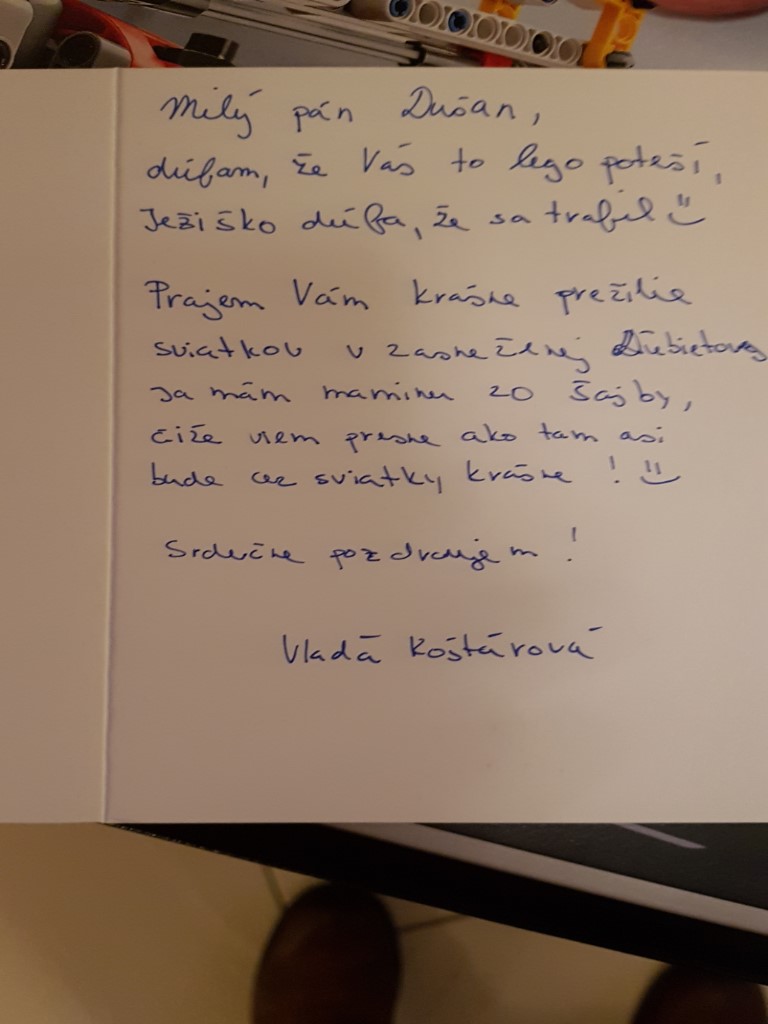 Milý pán Dušan,
dúfam, že Vás to lego poteší,
Ježiško dúfa, že sa trafil
Prajem Vám krásne prežitie
sviatkov v zasneženej Ľubietovej
Ja mám maminu zo Šajby,
čiže viem presne ako tam asi
bude cez sviatky krásne !
Srdečne pozdravujem !
Vlada Koštárová